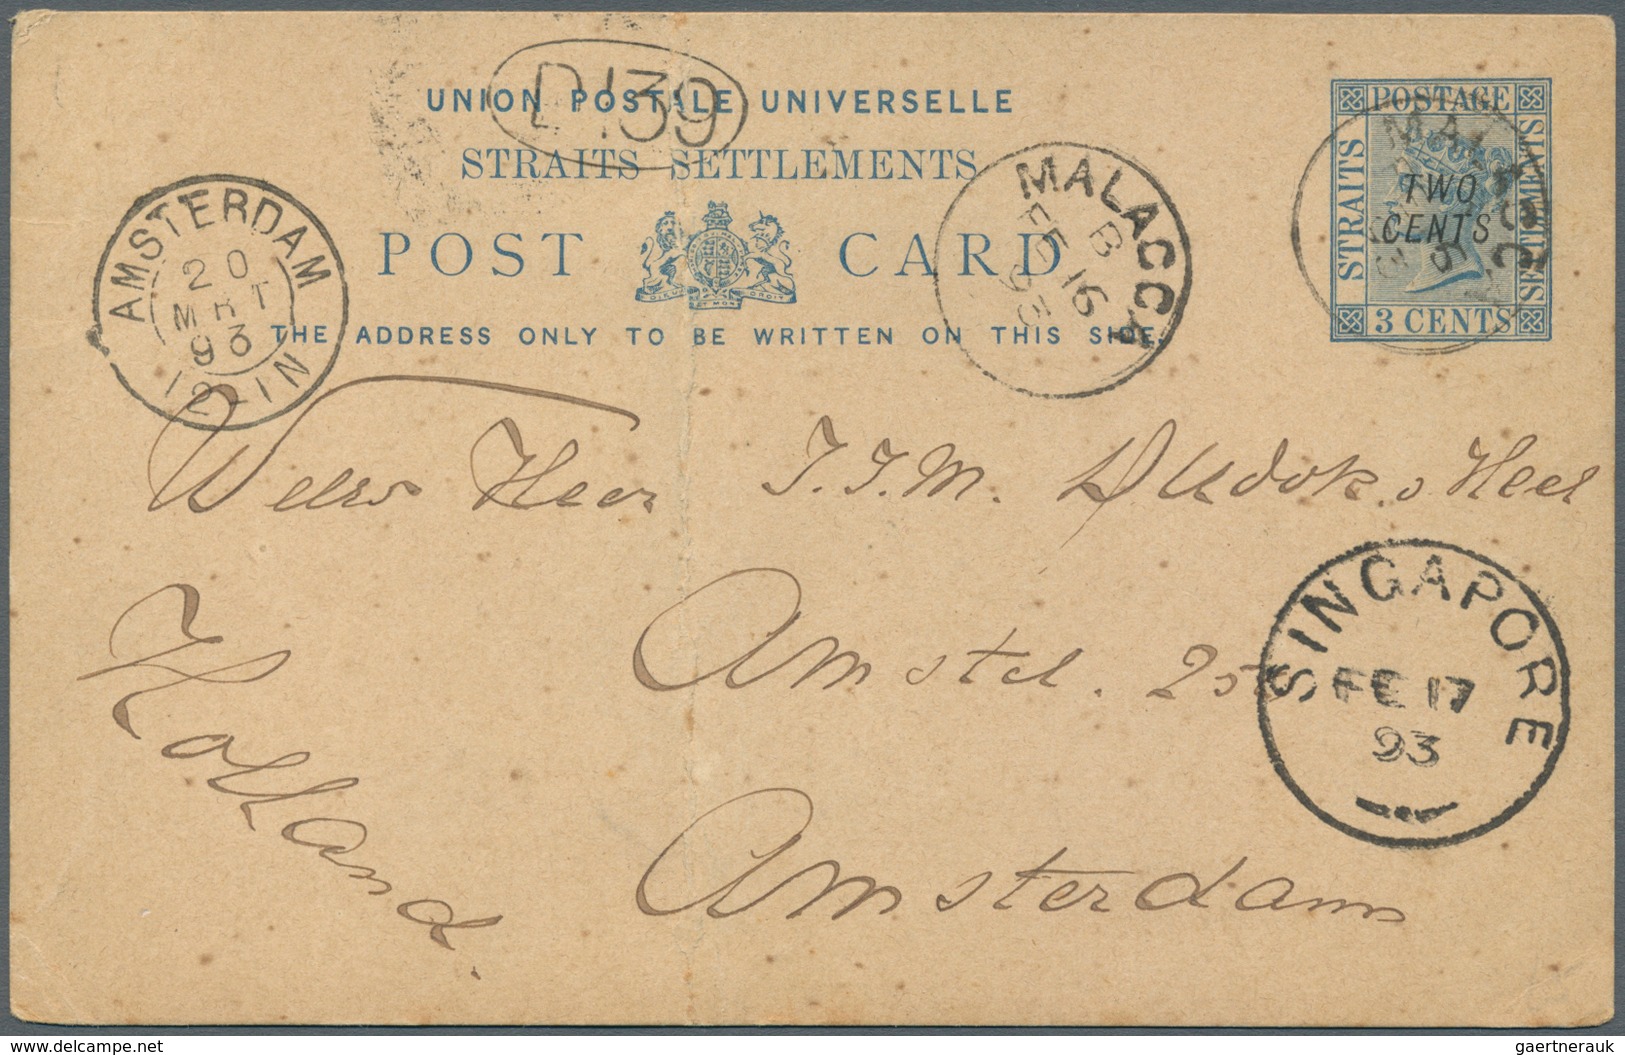 D 139
UNION POSTALE UNIVERSELLE
STRAITS SETTLEMENTS
POST CARD
THE ADDRESS ONLY TO BE WRITTEN ON THIS SIDE.
POSTAGE
STRAITS
SETTLEMENTS
TWO
CENTS
3 CENTS
MALACCA
B
FE 16
93
AMSTERDAM
20
MRT
93
12-1N
Heer J.J.M. Dudok Heel
Amstel.
Amsterdam
Holland.
SINGAPORE
FE 17
93
gaertnerauk
www.delcampe.com